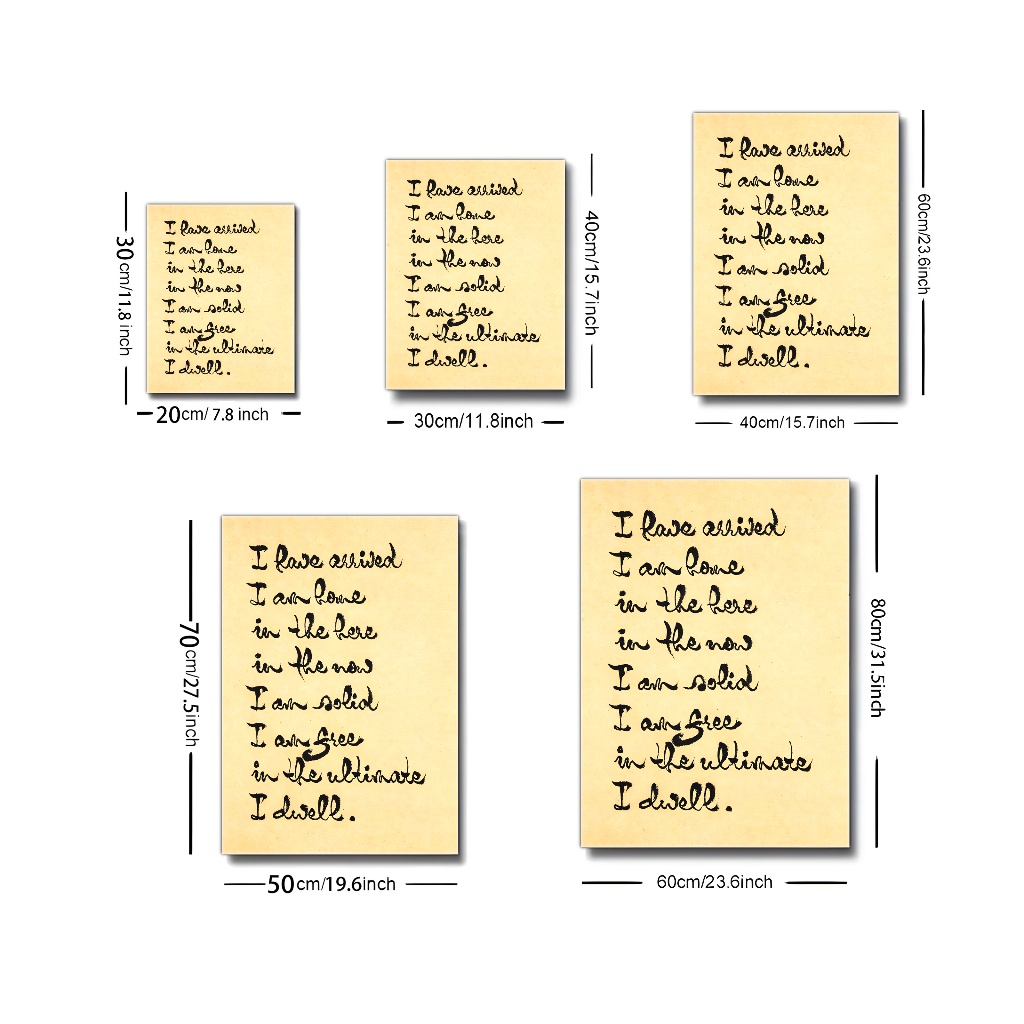 I have arrived
I am home
in the here
in the now
I am solid
I am free
in the ultimate
I dwell.
30cm/11.8 inch
20cm/ 7.8 inch
I have arrived
I am home
in the here
in the now
I am solid
I am free
in the ultimate
I dwell.
40cm/15.7inch
30cm/11.8inch
I have arrived
I am home
in the here
in the now
I am solid
I am free
in the ultimate
I dwell.
60cm/23.6inch
40cm/15.7inch
70cm/27.5inch
I have arrived
I am home
in the here
in the now
I am solid
I am free
in the ultimate
I dwell.
50cm/19.6inch
I have arrived
I am home
in the here
in the now
I am solid
I am free
in the ultimate
I dwell.
80cm/31.5inch
60cm/23.6inch